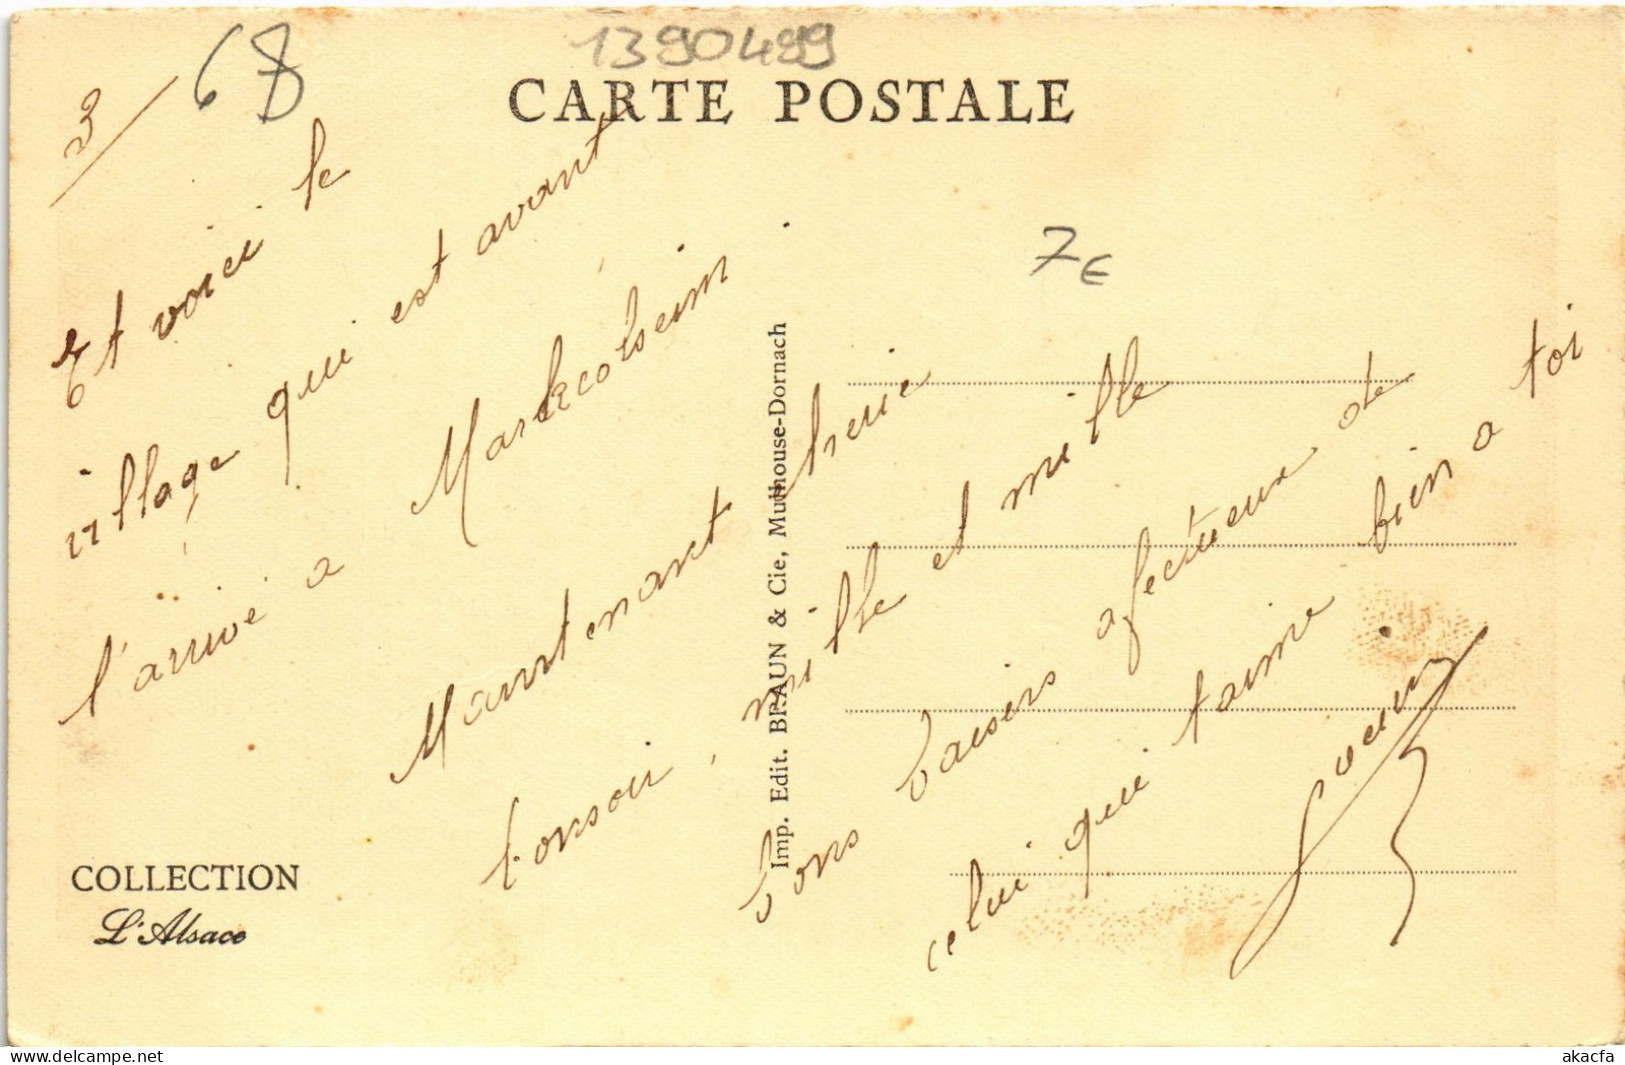 1390499
3/
68
CARTE POSTALE
7€
Et voici le
village qui est avant
l'arrivé a Markcolseim.
Maintenant cherie
bonsoir, mille et mille
bons baisers afectueux de
celui qui t'aime bien a toi
Imp. Edit. BRAUN & Cie, Mulhouse-Dornach
COLLECTION
L'Alsace
akacfa-delcampe.net
akacfa